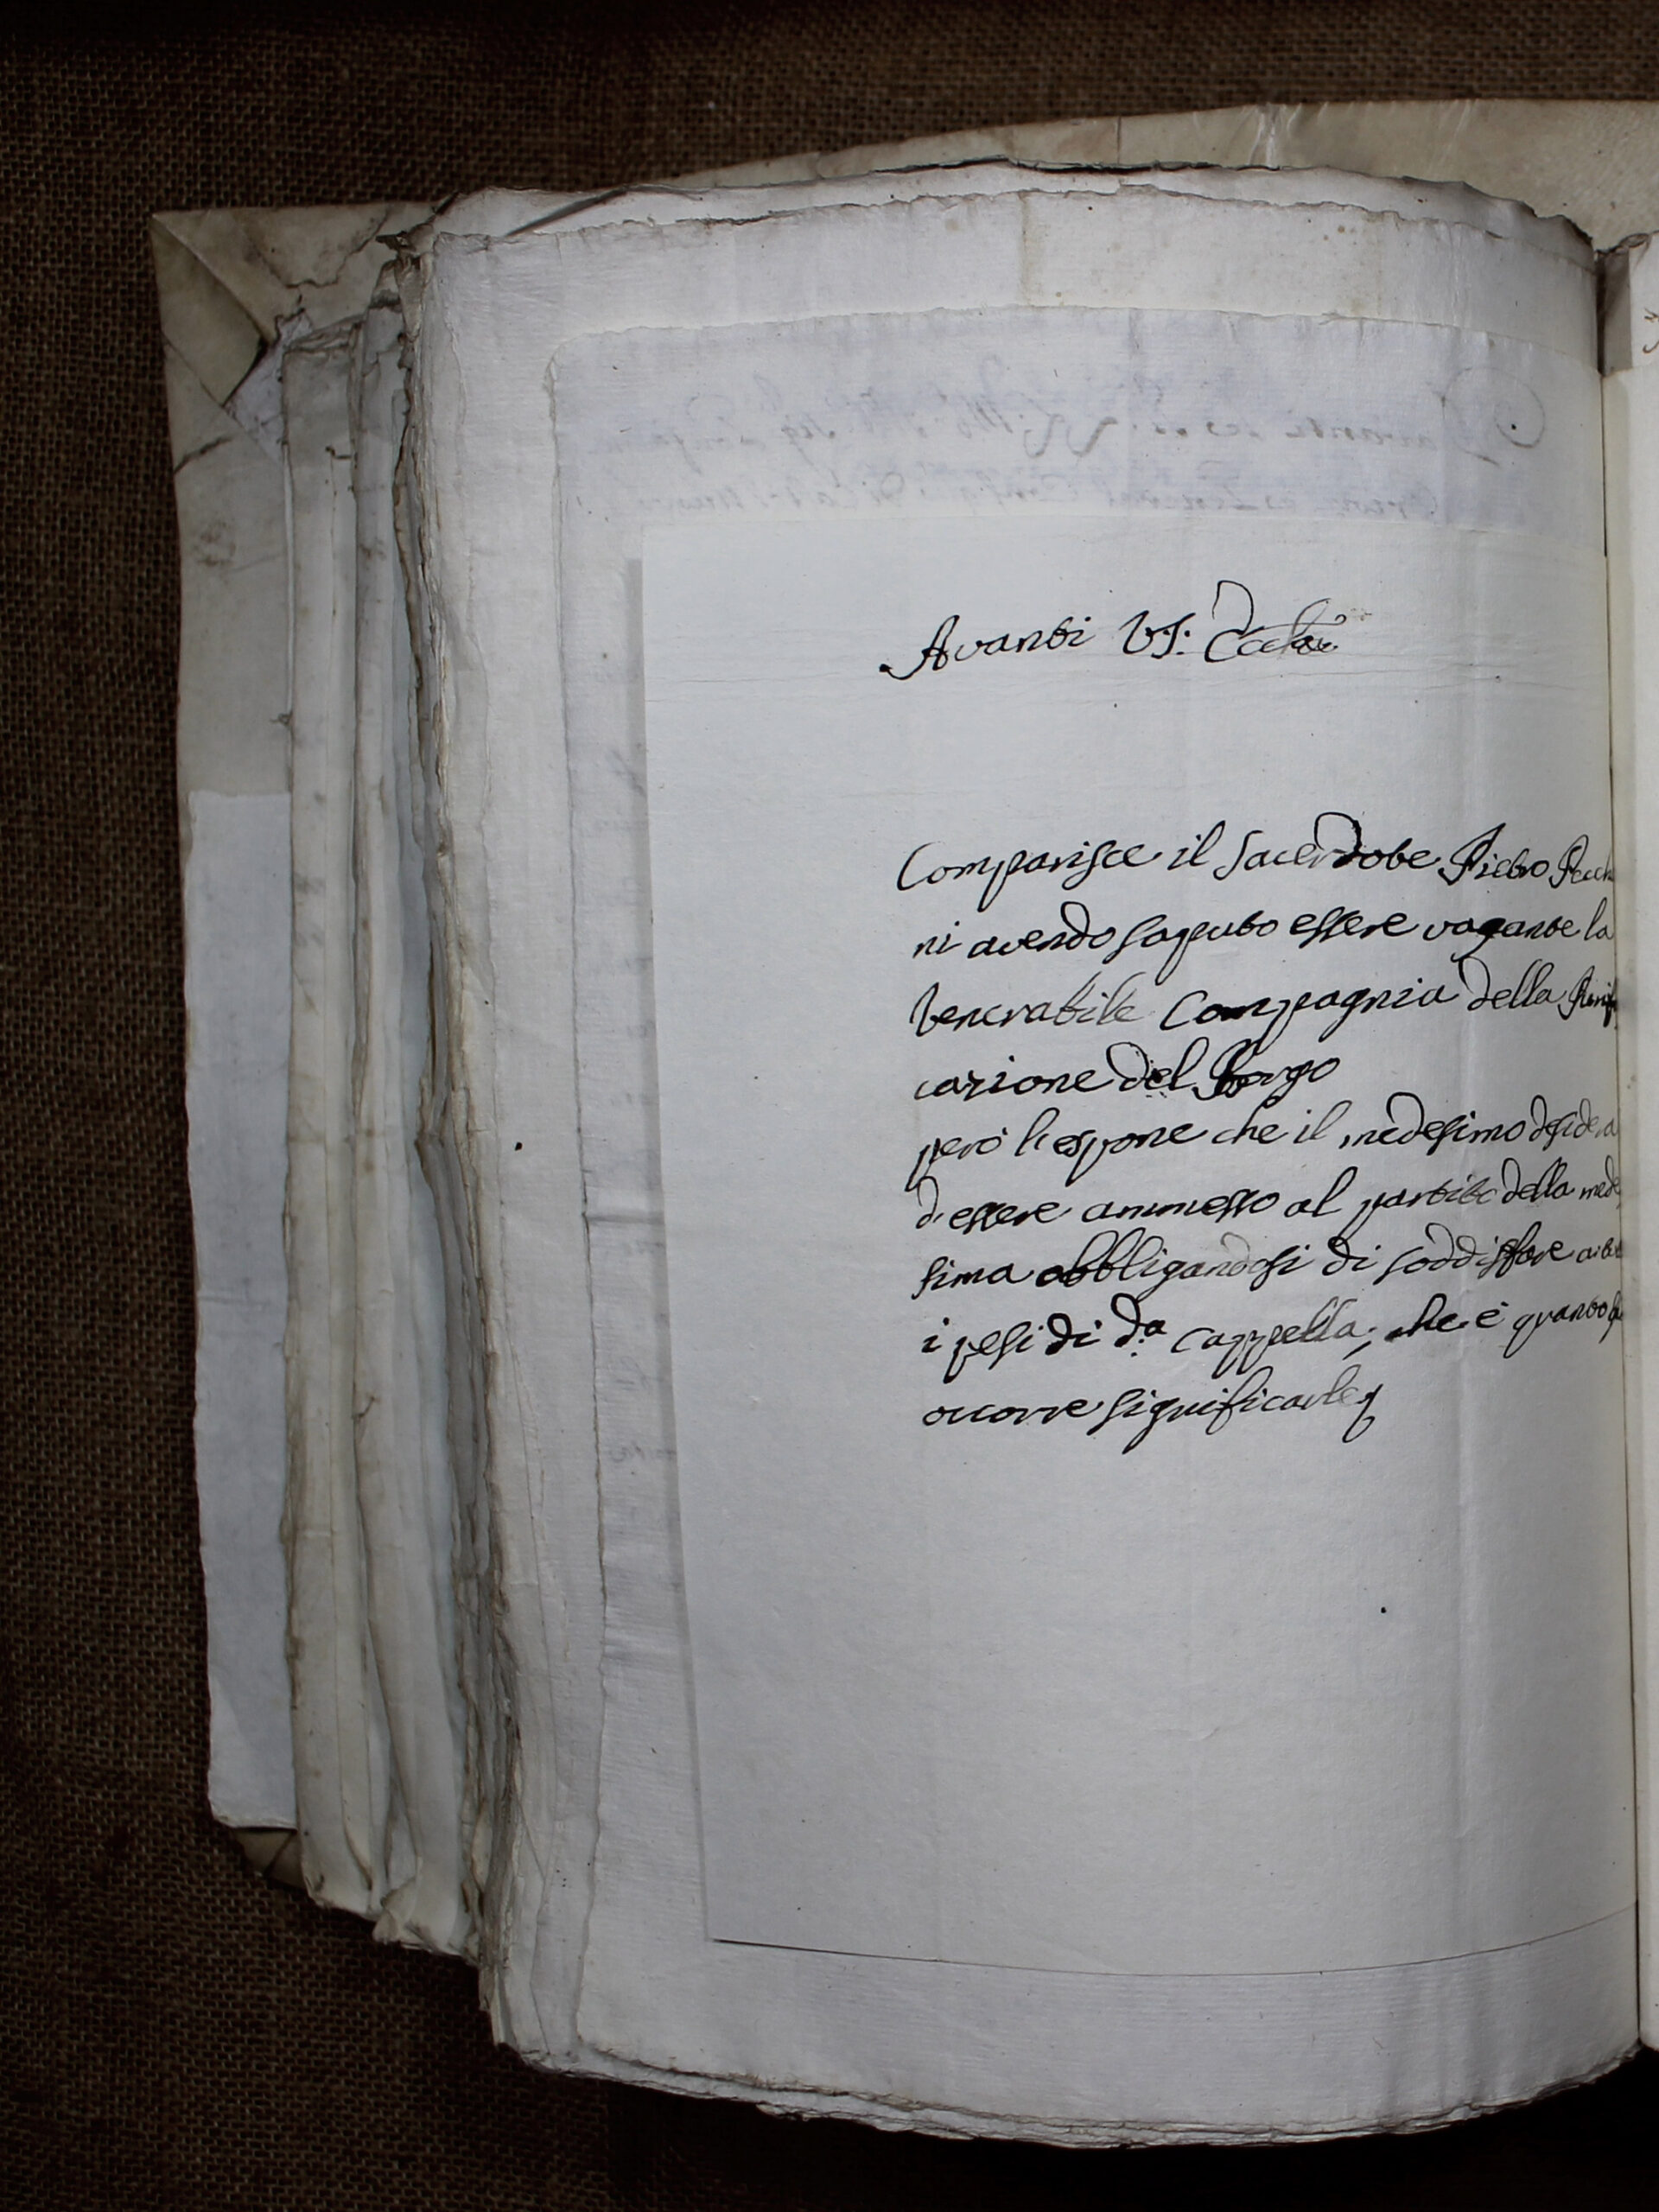 Avanti V.S: Eccla
Comparisce il Sacerdote Pietro
ni avendo saputo essere vagante la
Venerabile Compagnia della
cazione del Borgo
però le espone che il medesimo desidera
d'essere ammesso al partito della mede
sima obbligandosi di soddisfare a
i pesi di d.a cappella, che è quanto
occorre significarle